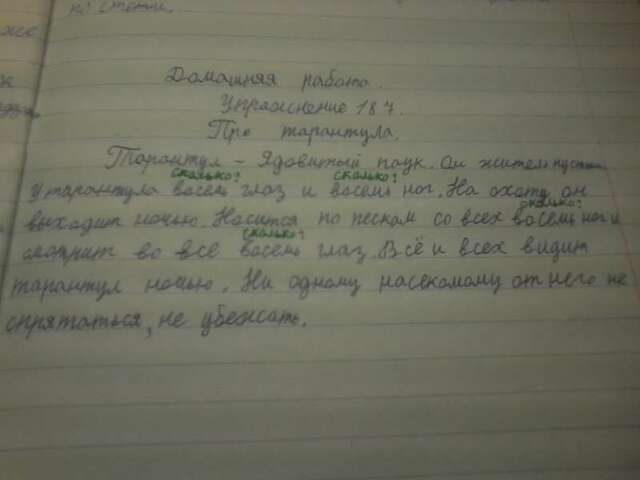 по степи.
Домашняя работа.
Упражнение 187.
Про тарантула.
Тарантул - Ядовитый паук. Он житель пустынь
сколько? сколько?
У тарантула восемь глаз и восемь ног. На охоту он
сколько?
выходит ночью. Носится по пескам со всех восемь ног и
сколько?
смотрит во все восемь глаз. Всё и всех видит
тарантул ночью. Ни одному насекомому от него не
спрятаться, не убежать.